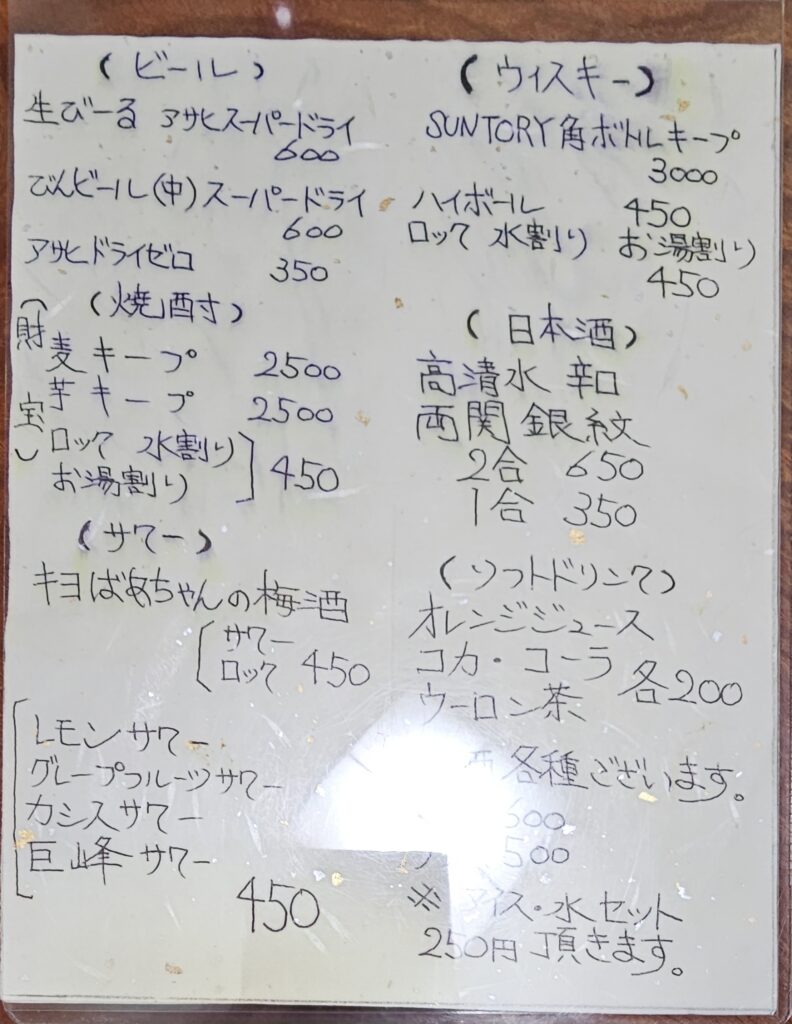 (ビール)
生びーる アサヒスーパードライ
600
びんビール(中)スーパードライ
600
アサヒドライゼロ 350
(焼酎)
(財宝)
麦キープ 2500
芋キープ 2500
ロック 水割り
お湯割り
450
(サワー)
キヨばあちゃんの梅酒
サワー
ロック 450
レモンサワー
グレープフルーツサワー
カシスサワー
巨峰サワー
450
(ウィスキー)
SUNTORY角ボトルキープ
3000
ハイボール 450
ロック 水割り お湯割り
450
(日本酒)
高清水 辛口
両関 銀紋
2合 650
1合 350
(ソフトドリンク)
オレンジジュース
コカ・コーラ
ウーロン茶
各200
各種ございます。
600
500
※アイス・水セット
250円頂きます。